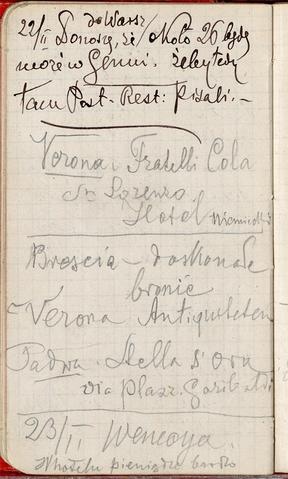 do Warsz
22/II Donoszę, że około 26 będę
może w Genui. żeby tedy
tam Post. Rest: pisali.-
Verona. Fratelli Cola
S. Lorenzo
Hotel niemiecki
Brescia - doskonałe
bronie
Verona Antiquitäten
Padwa. Stella d'oro
via Piazz. Garibaldi
23/II Wenecya.
W hotelu pieniądze bardzo